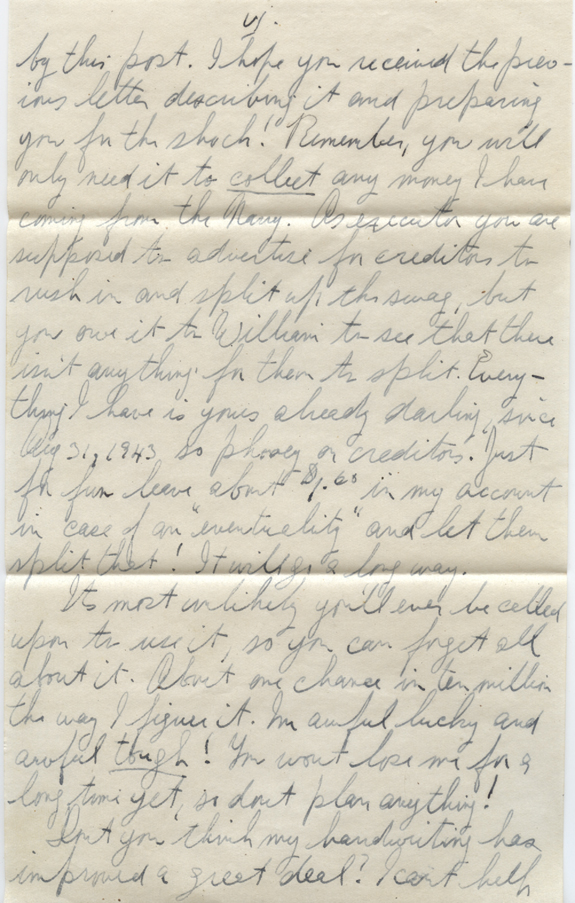 by this post. I hope you received the prev-
ious letter describing it and preparing
you for the shock! Remember, you will
only need it to collect any money I have
coming from the Navy. As executor you are
supposed to advertise for creditors to
rush in and split up the swag, but
you owe it to William to see that there
isn't anything for them to split. Every-
thing I have is yours already darling, since
Aug 31, 1943, so phooey on creditors. Just
for fun leave about $1.00 in my account
in case of an "eventuality" and let them
split that! It will go a long way.
Its most unlikely you'll ever be called
upon to use it, so you can forget all
about it. About one chance in ten million
the way I figure it. Im awful lucky and
awful tough! You wont lose me for a
long time yet, so dont plan anything!
Dont you think my handwriting has
improved a great deal? I cant help